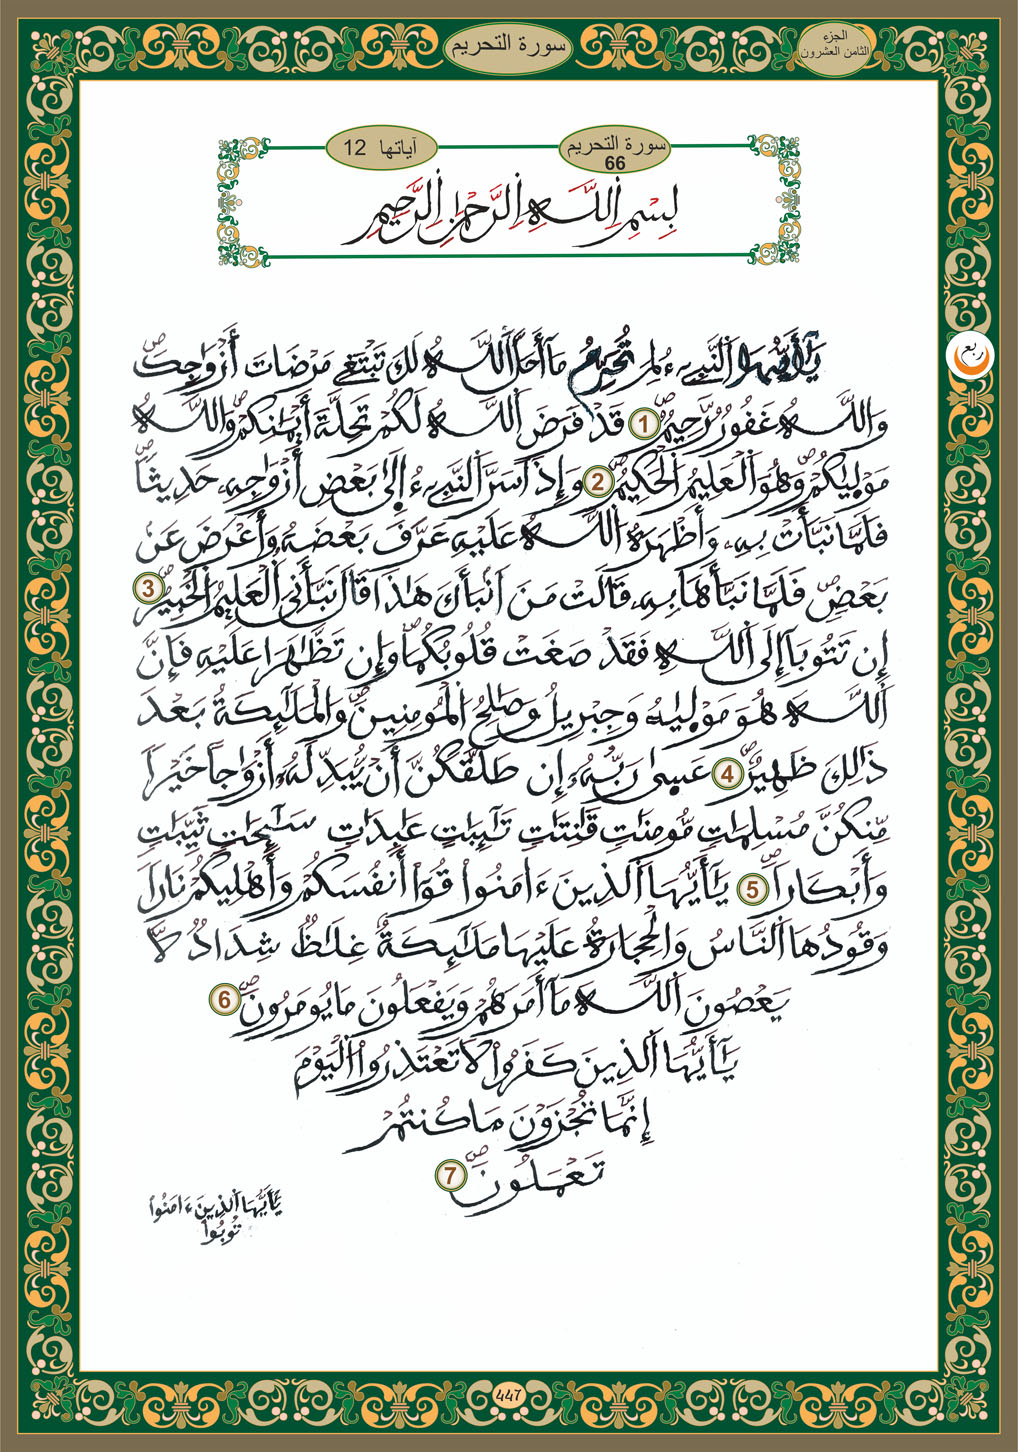 الجزء
الثامن العشرون
سورة التحريم
سورة التحريم
66
آياتها 12
بِسْمِ اِللَّهِ اِلرَّحْمَٰنِ اِلرَّحِيمِ
ربع
يَٰٓأَيُّهَا اَلنَّبِےٓءُ لِمَ تُحَرِّمُ مَآ أَحَلَّ اَللَّهُ لَكَ تَبْتَغِے مَرْضَاتَ أَزْوَٰجِكَۖ
وَاللَّهُ غَفُورٞ رَّحِيمٞۖ 1 قَدْ فَرَضَ اَللَّهُ لَكُمْ تَحِلَّةَ أَيْمَٰنِكُمْۖ وَاللَّهُ
مَوْلَيٰكُمْۖ وَهُوَ اَلْعَلِيمُ اُلْحَكِيمُۖ 2 وَإِذَ اَسَرَّ اَلنَّبِےٓءُ اِلَىٰ بَعْضِ أَزْوَٰجِهِۦ حَدِيثاٗۖ
فَلَمَّا نَبَّأَتْ بِهِۦ وَأَظْهَرَهُ اُللَّهُ عَلَيْهِ عَرَّفَ بَعْضَهُۥ وَأَعْرَضَ عَنۢ
بَعْضٖۖ فَلَمَّا نَبَّأَهَا بِهِۦ قَالَتْ مَنَ اَنۢبَأَكَ هَٰذَا قَالَ نَبَّأَنِيَ اَلْعَلِيمُ اُلْخَبِيرُۖ 3
إِن تَتُوبَآ إِلَى اَللَّهِ فَقَدْ صَغَتْ قُلُوبُكُمَاۖ وَإِن تَظَّٰهَرَا عَلَيْهِ فَإِنَّ
اَللَّهَ هُوَ مَوْلَيٰهُ وَجِبْرِيلُ وَصَٰلِحُ اُلْمُومِنِينَۖ وَالْمَلَٰٓئِكَةُ بَعْدَ
ذَٰلِكَ ظَهِيرٌۖ 4 عَسَىٰ رَبُّهُۥٓ إِن طَلَّقَكُنَّ أَنْ يُّبَدِّلَهُۥٓ أَزْوَٰجاً خَيْراٗ
مِّنكُنَّ مُسْلِمَٰتٖ مُّومِنَٰتٖ قَٰنِتَٰتٖ تَٰٓئِبَٰتٍ عَٰبِدَٰتٖ سَٰٓئِحَٰتٖ ثَيِّبَٰتٖ
وَأَبْكَاراٗۖ 5 يَٰٓأَيُّهَا اَلذِينَ ءَامَنُواْ قُوٓاْ أَنفُسَكُمْ وَأَهْلِيكُمْ نَاراٗ
وَقُودُهَا اَلنَّاسُ وَالْحِجَارَةُ عَلَيْهَا مَلَٰٓئِكَةٌ غِلَٰظٞ شِدَادٞ لَّا
يَعْصُونَ اَللَّهَ مَآ أَمَرَهُمْ وَيَفْعَلُونَ مَا يُومَرُونَۖ 6
يَٰٓأَيُّهَا اَلذِينَ كَفَرُواْ لَا تَعْتَذِرُواْ اُلْيَوْمَ
إِنَّمَا تُجْزَوْنَ مَا كُنتُمْ
تَعْمَلُونَۖ 7
يَٰٓأَيُّهَا اَلذِينَ ءَامَنُواْ
تُوبُوٓاْ
447